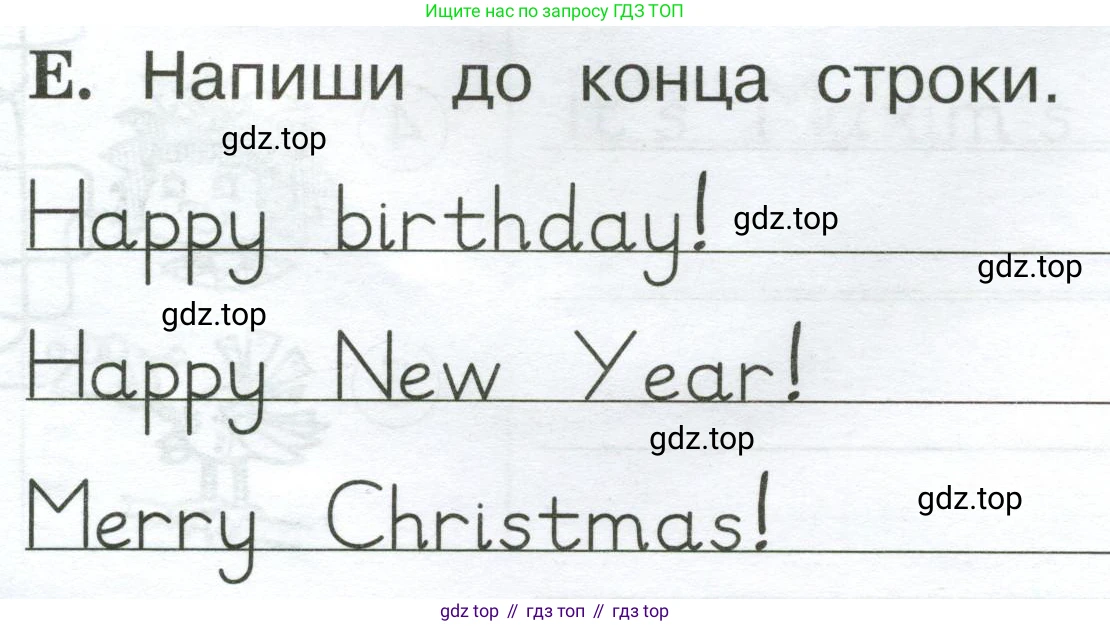 Ищите нас по запросу ГДЗ ТОП
E. Напиши до конца строки.
gdz.top
Happy birthday!
gdz.top
gdz.top
gdz.top
Happy New Year!
gdz.top
Merry Christmas!
gdz.top
gdz top // гдз топ // гдз top